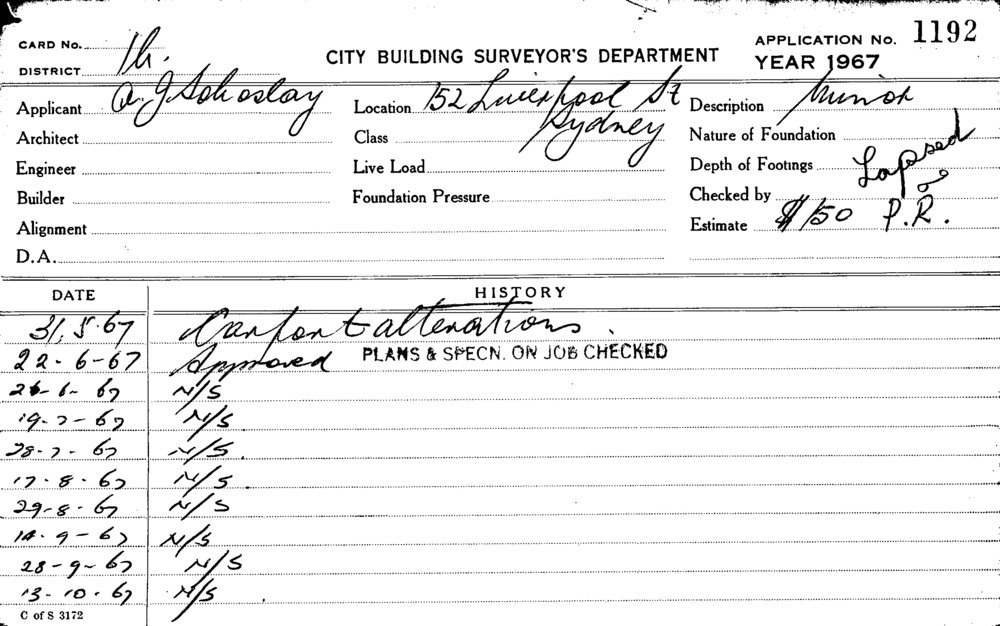 CARD No. 1h. CITY BUILDING SURVEYOR'S DEPARTMENT APPLICATION No. 1192
DISTRICT YEAR 1967
Applicant A. J. Location 152 Liverpool St Sydney Description Minor
Architect Class Nature of Foundation
Engineer Live Load Depth of Footings Lapsed
Builder Foundation Pressure Checked by
Alignment Estimate $150 P.R.
D.A.
DATE HISTORY
31.5.67 Carport alterations.
22-6-67 Approved PLANS & SPECN. ON JOB CHECKED
26-6-67 N/S
19-7-67 N/S
28-7-67 N/S.
17.8.67 N/S.
29-8-67 N/S
14.9-67 N/S
28-9-67 N/S
13-10.67 N/S.
C of S 3172